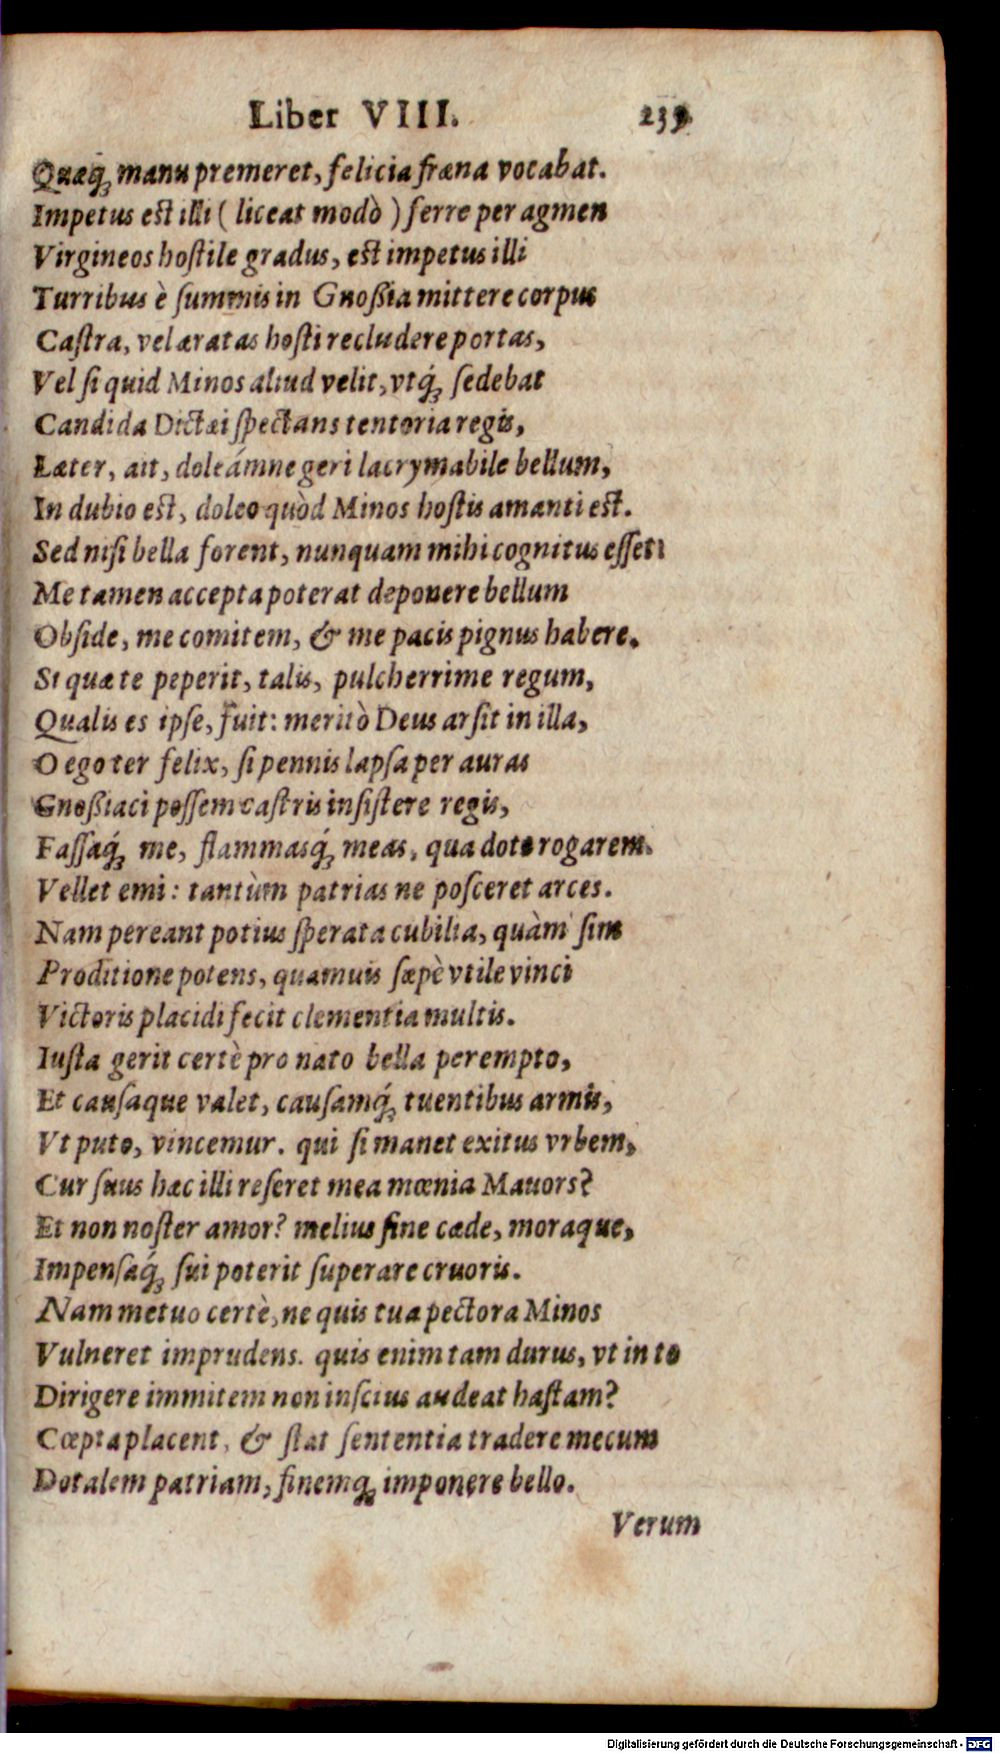 Liber VIII. 239
Quæq́ꝫ manu premeret, felicia fræna vocabat.
Impetus est illi ( liceat modò ) ferre per agmen
Virgineos hostile gradus, est impetus illi
Turribus è summis in Gnoßia mittere corpus
Castra, vel æratas hosti recludere portas,
Vel si quid Minos aliud velit, vtq́ꝫ sedebat
Candida Dictæi spectans tentoria regis,
Læter, ait, doleámne geri lacrymabile bellum,
In dubio est, doleo quòd Minos hostis amanti est.
Sed nisi bella forent, nunquam mihi cognitus esset:
Me tamen accepta poterat deponere bellum
Obside, me comitem, & me pacis pignus habere.
Si quæ te peperit, talis, pulcherrime regum,
Qualis es ipse, fuit: meritò Deus arsit in illa,
O ego ter felix, si pennis lapsa per auras
Gnoßiaci possem castris insistere regis,
Fassaq́ꝫ me, flammasq́ꝫ meas, qua dote rogarem.
Vellet emi: tantùm patrias ne posceret arces.
Nam pereant potius sperata cubilia, quàm sim
Proditione potens, quamuis sæpè vtile vinci
Victoris placidi fecit clementia multis.
Iusta gerit certè pro nato bella perempto,
Et causaque valet, causamq́ꝫ tuentibus armis,
Vt puto, vincemur. qui si manet exitus vrbem,
Cur suus hæc illi reseret mea mœnia Mauors?
Et non noster amor? melius sine cæde, moraque,
Impensaq́ꝫ sui poterit superare cruoris.
Nam metuo certè, ne quis tua pectora Minos
Vulneret imprudens. quis enim tam durus, vt in te
Dirigere immitem non inscius audeat hastam?
Cœpta placent, & stat sententia tradere mecum
Dotalem patriam, finemqꝫ imponere bello.
Verum
Digitalisierung gefördert durch die Deutsche Forschungsgemeinschaft - DFG